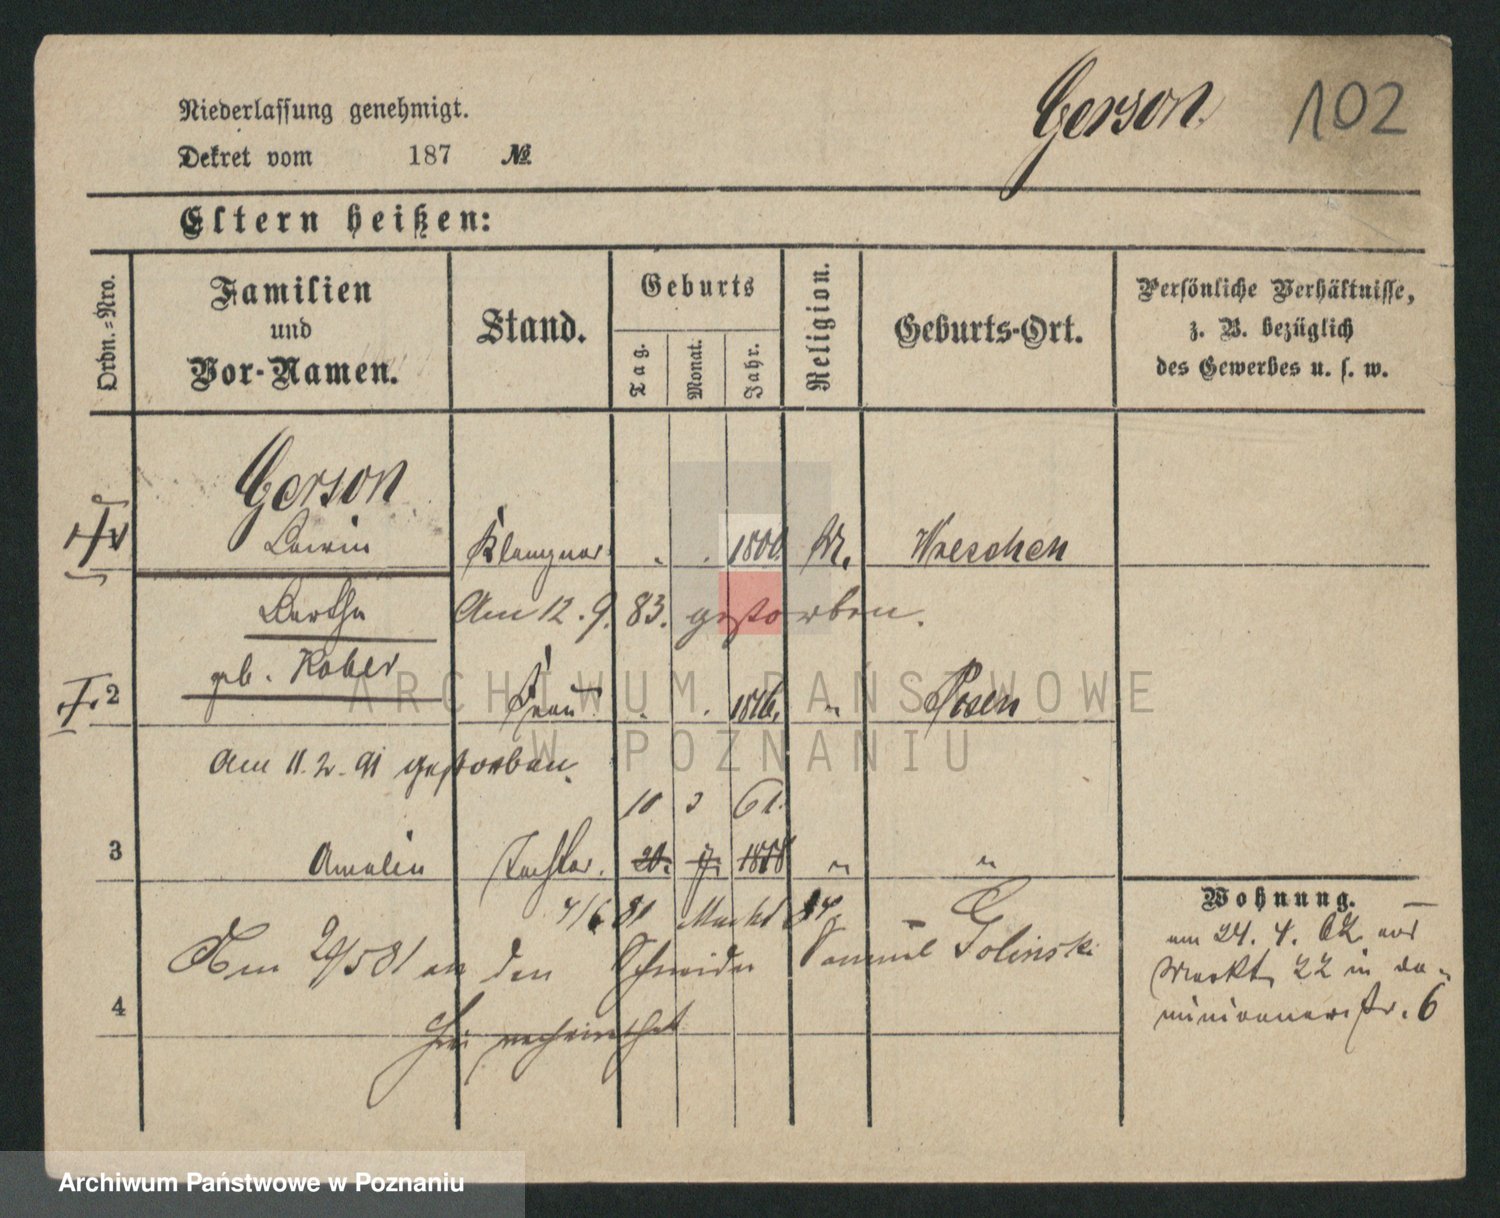 Gerson.
102
Niederlassung genehmigt.
Dekret vom 187 №
Eltern heißen:
Ordn.=Nro.
Familien
und
Vor-Namen.
Stand.
Geburts
Tag.
Monat.
Jahr.
Religion.
Geburts-Ort.
Persönliche Verhältnisse,
z. B. bezüglich
des Gewerbes u. s. w.
Gerson
Klempner . . 1800 M. Wreschen
Bertha Am 12. 9. 83. gestorben.
geb. Kober
2 Frau . . 1816. " Posen
Am 11. 2. 91 gestorben.
10 3 61.
3 Amalie Tochter. 20. 7. 1858 " "
4/6 81 Markt 84
Am 29/5 81 an den Schneider Samuel Golinski
4
verheirathet
Wohnung.
am 24. 4. 82 aus
Markt 22 in Do-
minicanerstr. 6
ARCHIWUM PAŃSTWOWE
W POZNANIU
Archiwum Państwowe w Poznaniu